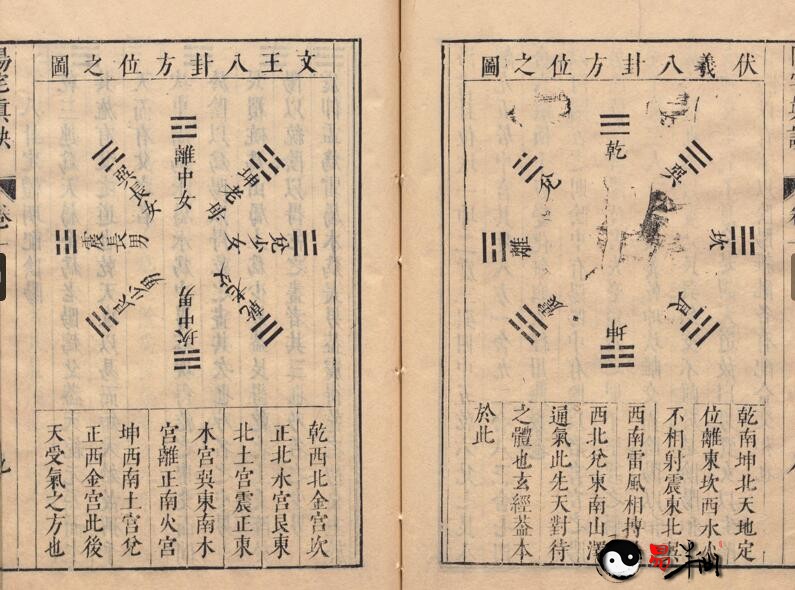 伏羲八卦方位之圖
乾
巽
坎
艮
坤
震
離
兌
乾南坤北天地定
位離東坎西水火
不相射震東北巽
西南雷風相
西北兌東南山澤
通氣此先天對待
之體也玄經葢本
於此
文王八卦方位之圖
離中女
坤老母
兌少女
乾老父
坎中男
艮少男
震長男
巽長女
乾西北金宮坎
正北水宮艮東
北土宮震正東
木宮巽東南木
宮離正南火宮
坤西南土宮兌
正西金宮此後
天受氣之方也